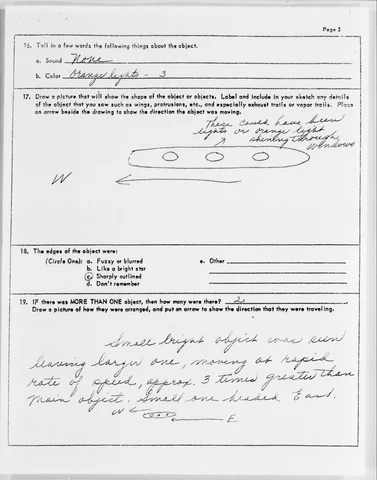 Page 3
16. Tell in a few words the following things about the object.
a. Sound None
b. Color Orange lights - 3
17. Draw a picture that will show the shape of the object or objects. Label and include in your sketch any details
of the object that you saw such as wings, protrusions, etc., and especially exhaust trails or vapor trails. Place
an arrow beside the drawing to show the direction the object was moving.
These could have been
lights or orange light
shining through
windows
W
18. The edges of the object were:
(Circle One): a. Fuzzy or blurred
b. Like a bright star
c. Sharply outlined
d. Don't remember
e. Other
19. IF there was MORE THAN ONE object, then how many were there? 2
Draw a picture of how they were arranged, and put an arrow to show the direction that they were traveling.
Small bright object was seen
leaving larger one, moving at rapid
rate of speed, approx. 3 times greater than
main object. Small one headed East.
W E